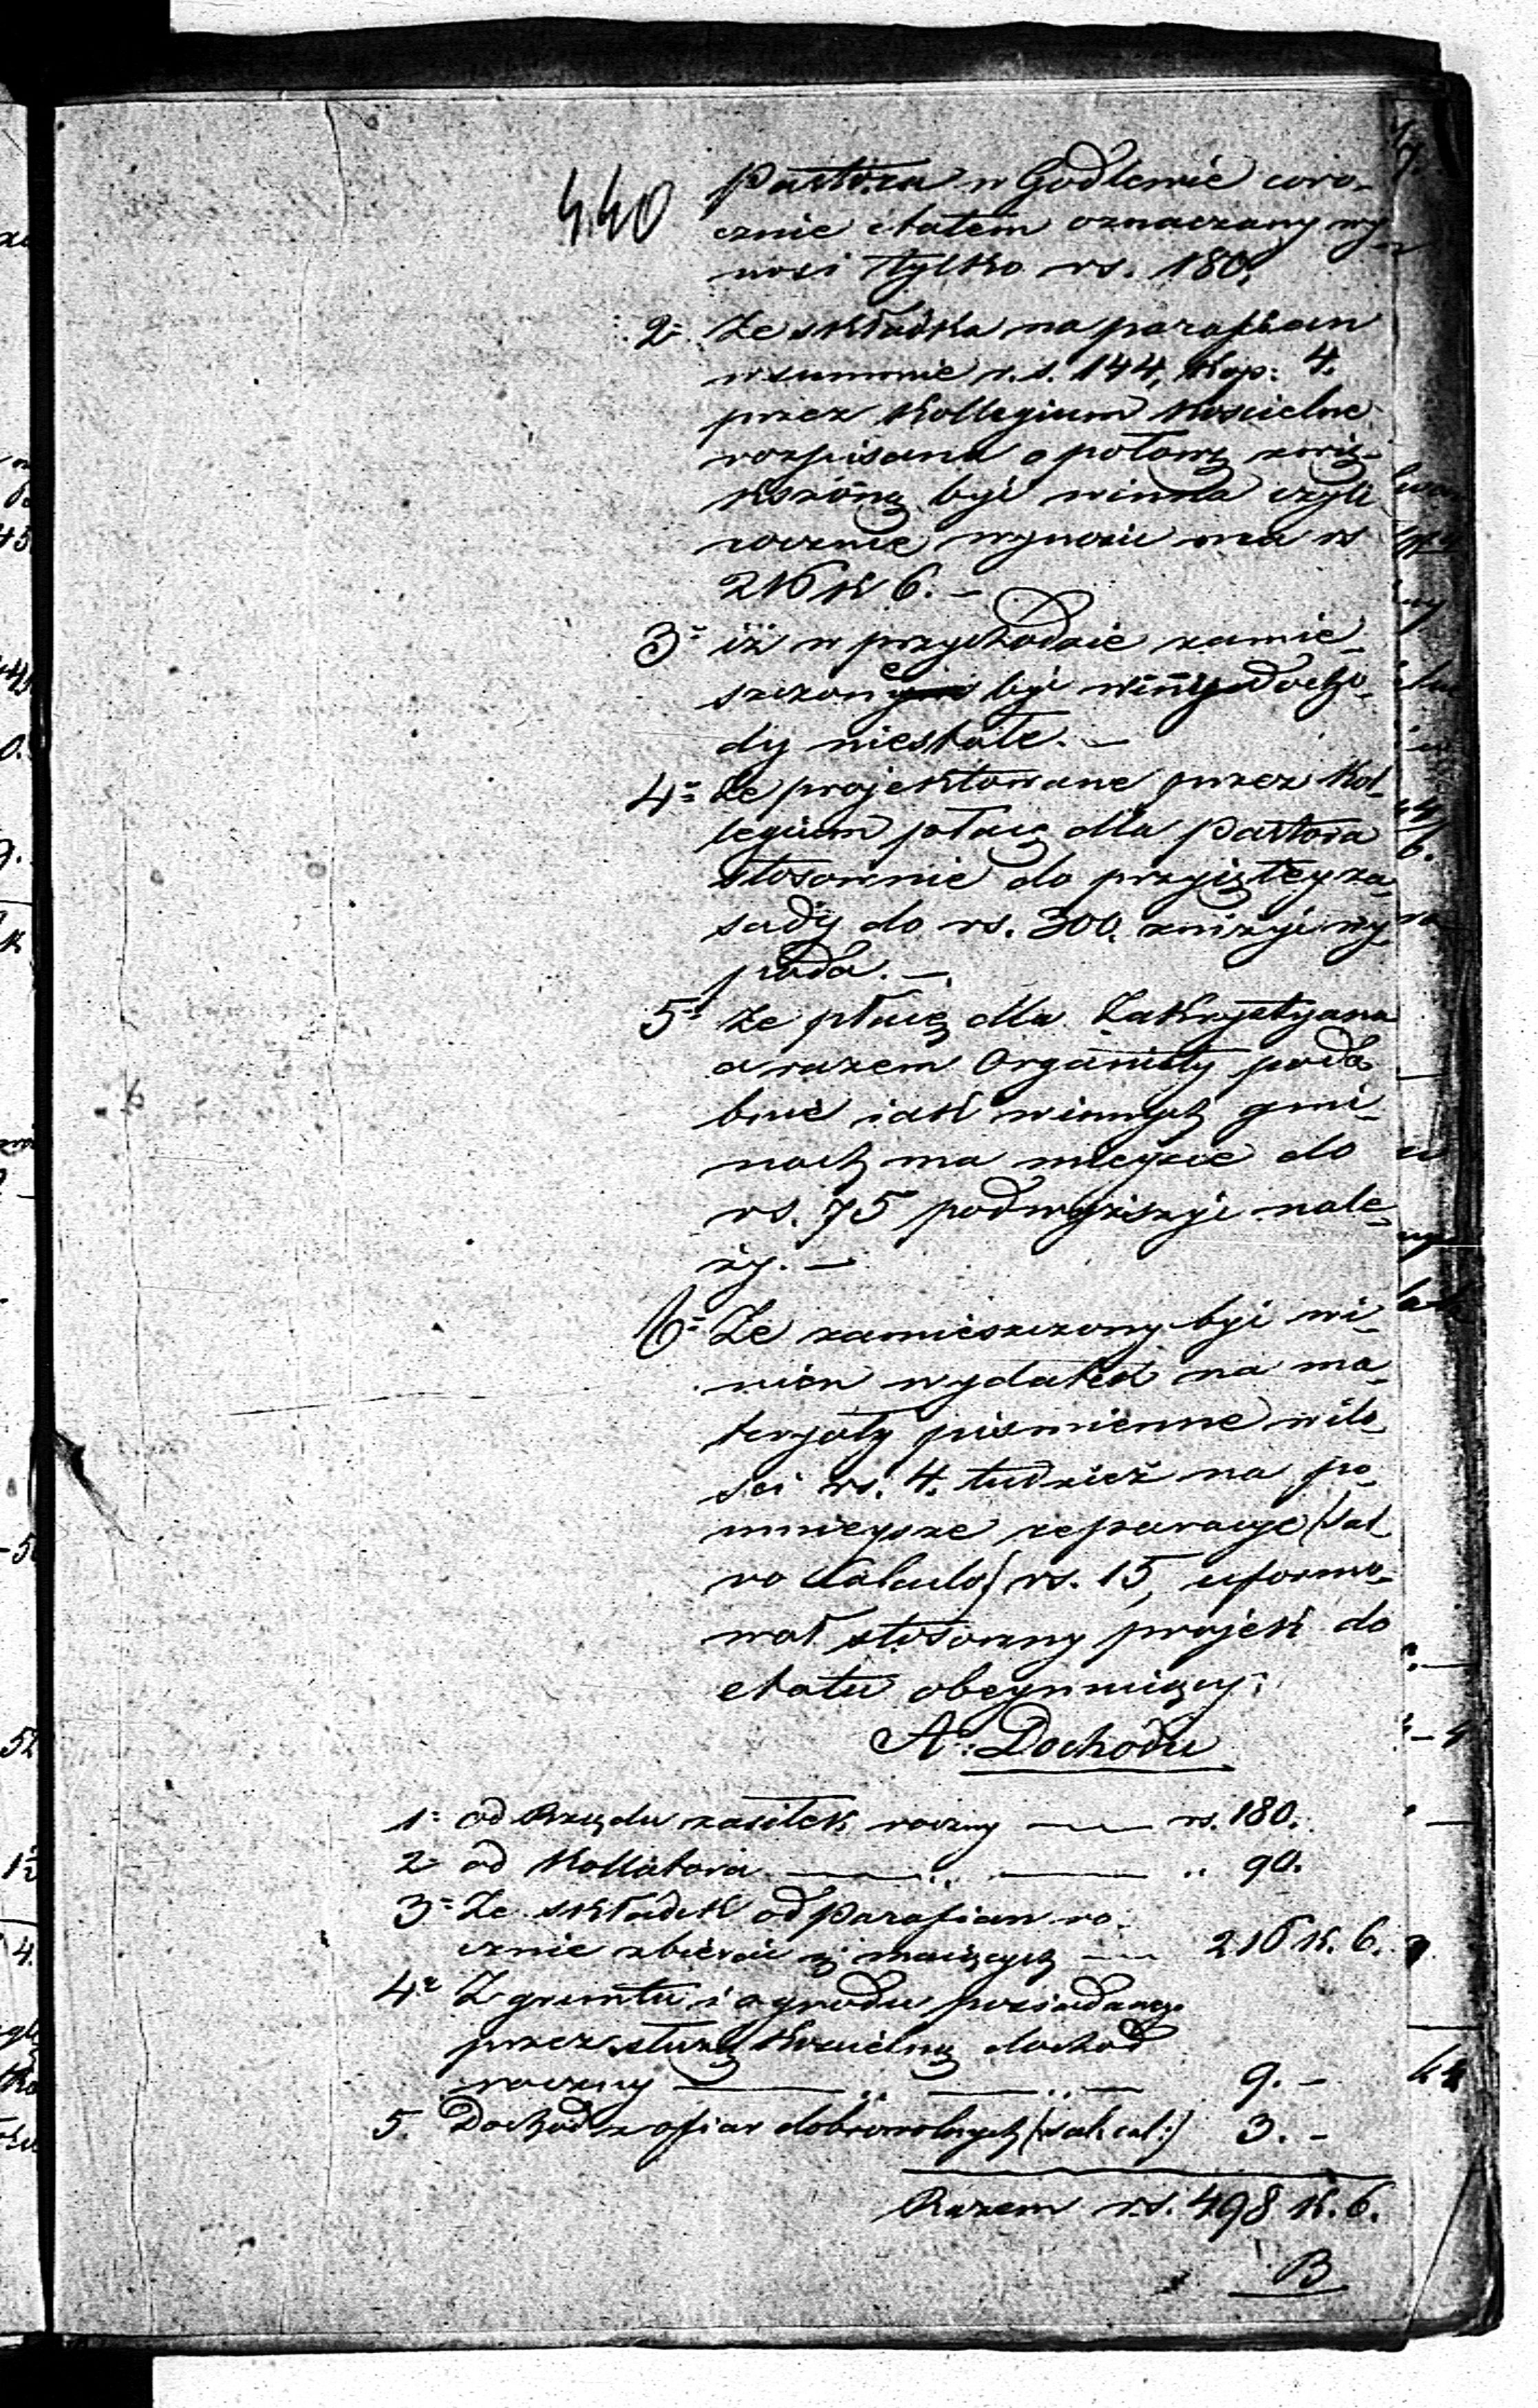 440
Pastora w Godlewie coro-
cznie etatem oznaczany wy-
nosi tylko rs. 180,
2= Ze składka na parafian
w summie r.s. 144, kop: 4.
przez Kollegium Koscielne
rozpisana o połowę zwię-
kszoną być winna czyli
rocznie wynosić ma rs
216 k 6. –
3= iż w przychodzie zamie-
szczone być winny docho-
dy niestałe. –
4= Ze projektowane przez Kol-
legium płacę dla Pastora
stosownie do przyiętey za-
sady do rs. 300. zniżyć wy-
pada. –
5= Ze płacę dla Zakrystyana
a razem Organisty podo-
bnie iak w innych gmi-
nach ma mieysce do
rs. 75 podwyższyć nale-
ży. –
6= Ze zamieszczony być wi-
nien wydatek na ma-
teryały pismienne w ilo-
sci rs. 4. tudzież na po-
mnieysze reparacye (sal-
vo Calculo) rs. 15, uformo-
wał stosowny projekt do
etatu obeymuiący;
A: Dochodu
1= od Rządu zasiłek roczny — rs. 180.
2= od Kollatora — „ — „ 90.
3= Ze składek od Parafian ro-
cznie zbierać się maiących — 216 k. 6.
4= Z gruntu i ogrodu posiadanego
przez służbę Koscielną dochod
roczny — „ — „ — 9. –
5. Dochod z ofiar dobrowolnych (sal: cal:) 3. –
Razem rs. 498 k. 6.
B